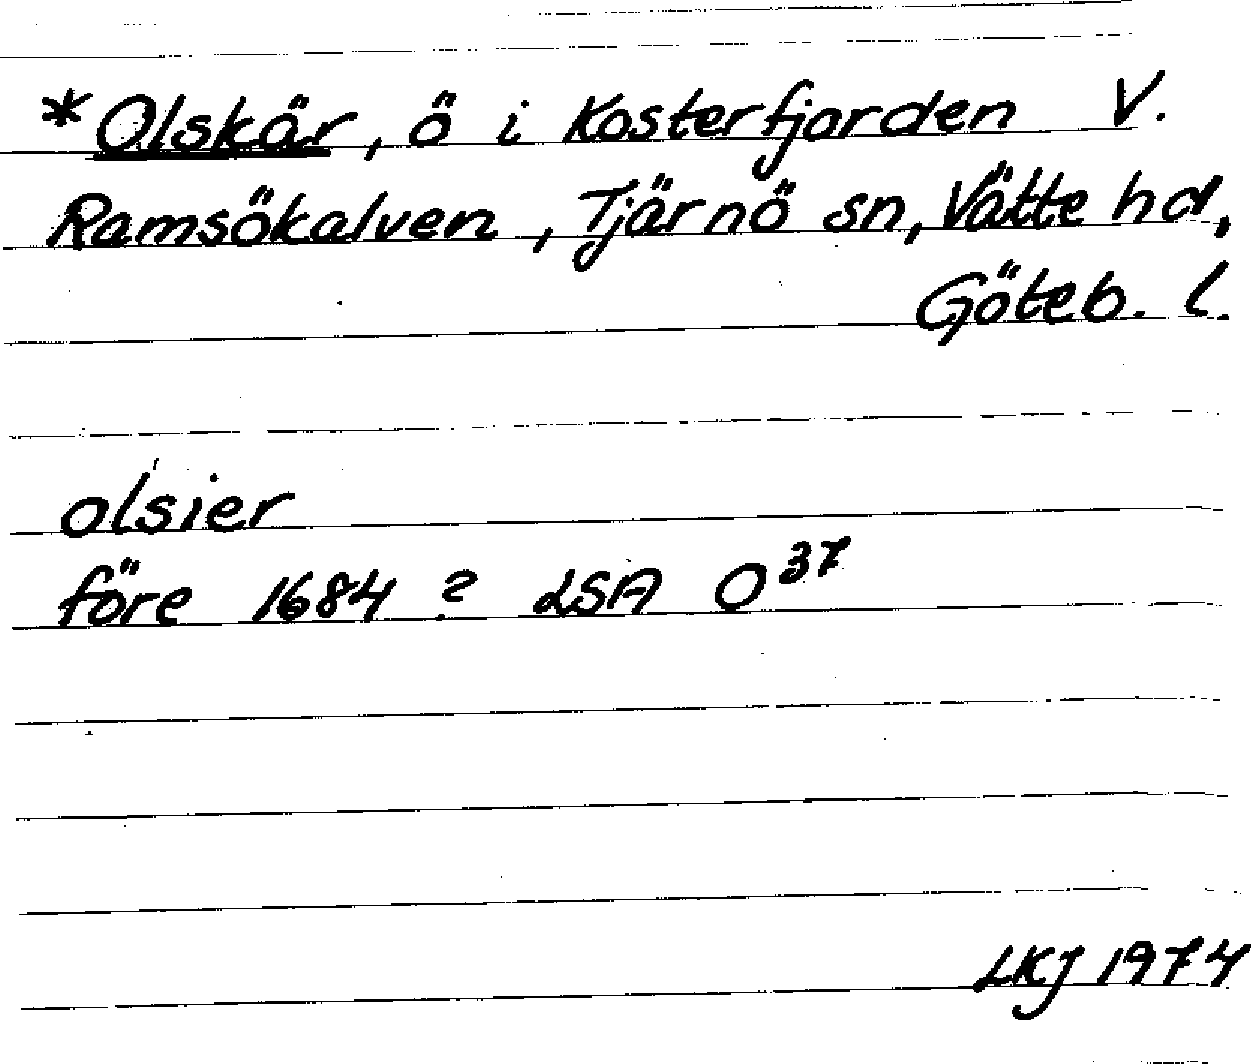 *Olskär, ö i Kosterfjorden V.
Ramsökalven, Tjärnö sn, Vätte hd,
Göteb. l.
olsier
före 1684 ? LSA O³⁷
LKJ 1974